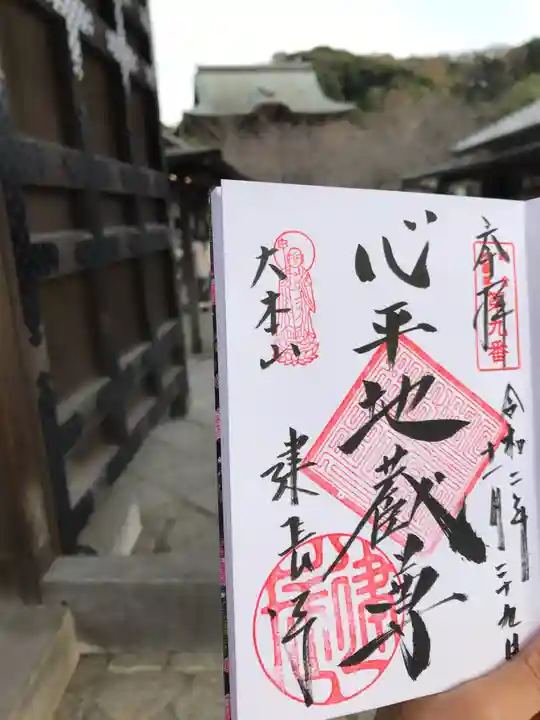 奉拝
第九番
令和二年
十一月二十九日
心平地蔵尊
大本山
建長寺